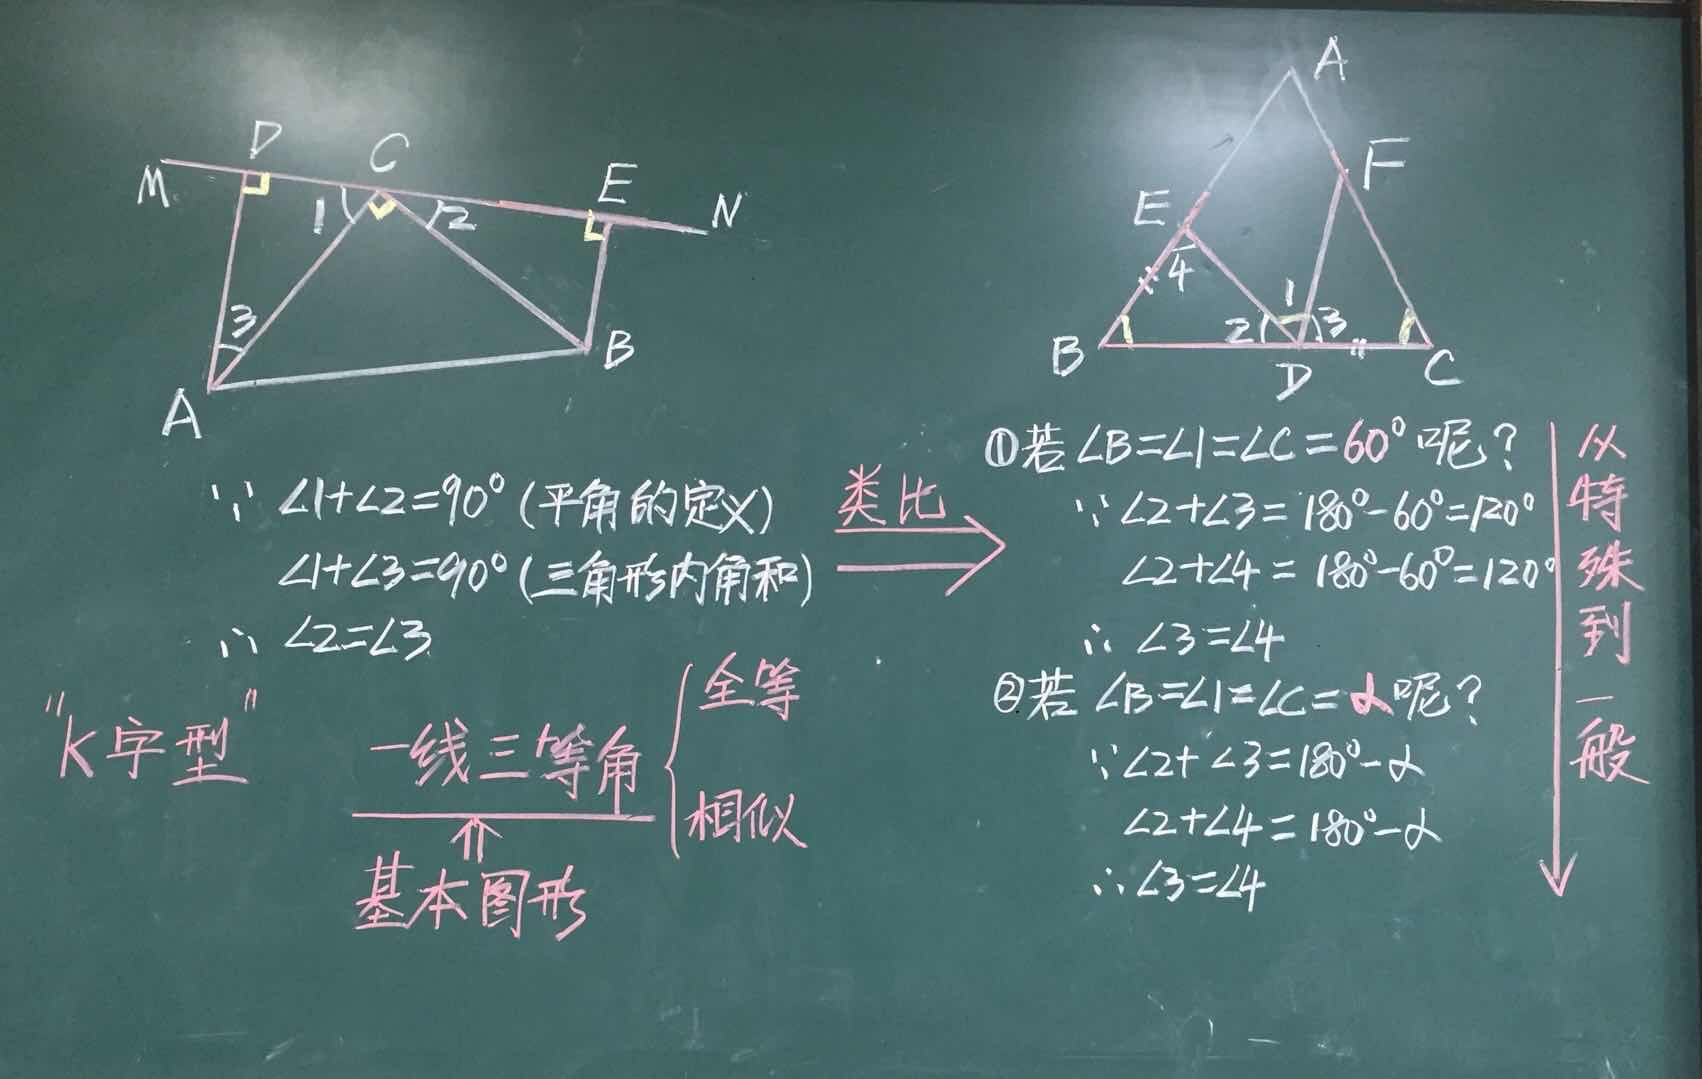 M D C E N
1 2
3
A B
A
E F
4 1
2 3
B D C
∵ ∠1+∠2=90°(平角的定义)
∠1+∠3=90°(三角形内角和)
∴ ∠2=∠3
"K字型"
一线三等角
全等
相似
基本图形
类比
①若∠B=∠1=∠C=60°呢?
∵∠2+∠3=180°-60°=120°
∠2+∠4=180°-60°=120°
∴ ∠3=∠4
②若∠B=∠1=∠C=α呢?
∵∠2+∠3=180°-α
∠2+∠4=180°-α
∴∠3=∠4
从特殊到一般